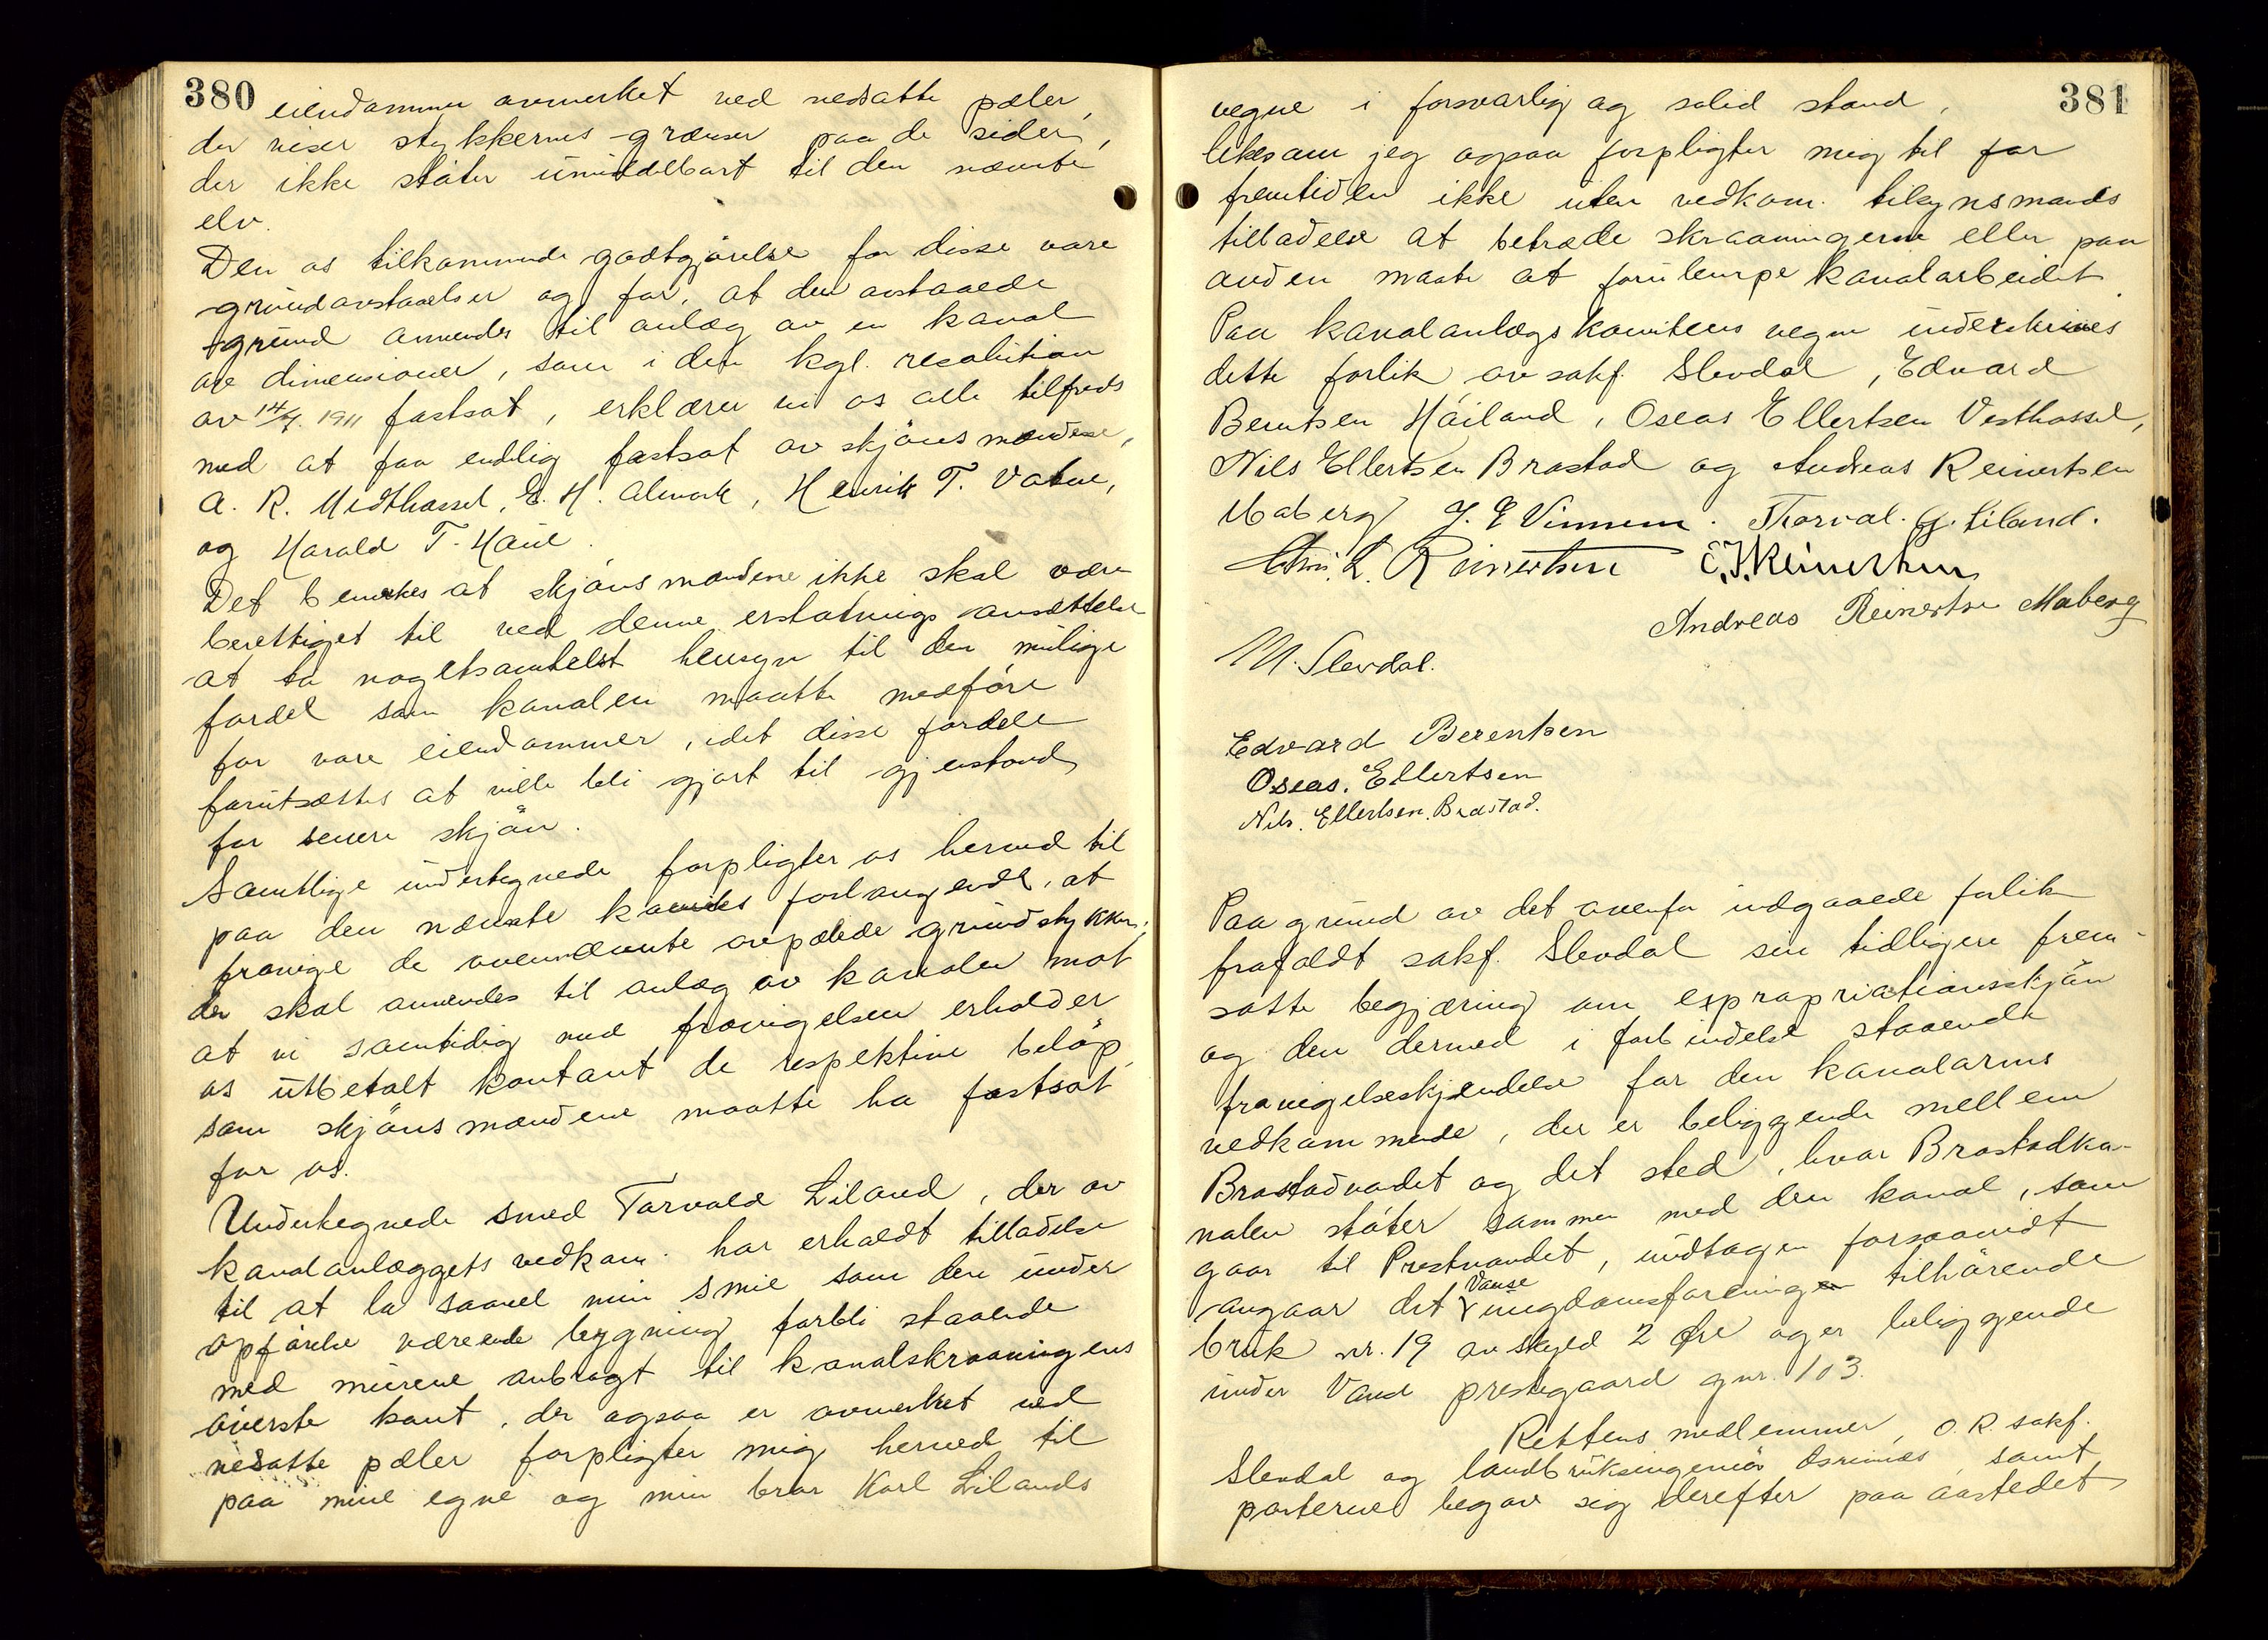 380
eiendommer avmerket ved nedsatte pæler,
der viser stykkernes grænser paa de sider,
der ikke støter umiddelbart til den nævnte
elv.
Den os tilkommende godtgjørelse for disse vare
grundavstaaelser og for, at den avstaaede
grund anvendes til anlæg av en kanal
av dimensioner, som i den kgl. resolution
av 14/7. 1911 fastsat, erklærer vi os alle tilfreds
med at faa endelig fastsat av skjønsmændene,
A. R. Midthassel, E. H. Alwark, Henrik T. Vatne,
og Harald T. Haue.
Det bemerkes at skjønsmændene ikke skal være
berettiget til ved denne erstatnings ansættelse
at ta nogetsomhelst hensyn til den mulige
fordel som kanalen maatte medføre
for vare eiendommer, idet disse fordele
forutsættes at ville bli gjort til gjenstand
for senere skjøn.
Samtlige undertegnede forpligter os herved til
paa den nævnte komites forlangende, at
fravige de ovennævnte avpælede grundstykker,
der skal anvendes til anlæg av kanalen mot
at vi samtidig med fravigelsen erholder
os utbetalt kontant de respektive beløp,
som skjønsmændene maatte ha fastsat
for os.
Undertegnede smed Torvald Liland, der av
kanalanlæggets vedkom. har erholdt tilladelse
til at la saavel min smie som den under
opførelse værende bygning forbli staaende
med murene anbragt til kanalskraaningens
øverste kant, der ogsaa er avmerket ved
nedsatte pæler forpligter mig herved til
paa mine egne og min bror Karl Lilands
381
vegne i forsvarlig og solid stand,
likesom jeg ogsaa forpligter mig til for
fremtiden ikke uten vedkom. tilsynsmands
tilladelse at betræde skraaningerne eller paa
anden maate at forulempe kanalarbeidet.
Paa kanalanlægskomiteens vegne underskrives
dette forlik av sakf. Slevdal, Edvard
Berntsen Høiland, Oseas Ellertsen Vesthassel,
Nils Ellertsen Brastad og Andreas Reinertsen
Maberg J. E Vinnem. Thorval. G. Liland.
Chr. L. Reinertsen E. J. Reinertsen
Andreas Reinertsen Maberg
M. Slevdal.
Edvard Berentsen
Oseas. Ellertsen
Nils. Ellertsen. Brastad.
Paa grund av det ovenfor indgaaede forlik
frafaldt sakf. Slevdal sin tidligere frem-
satte begjæring om expropriationsskjøn
og den dermed i forbindelse staaende
fravigelseskjendelse for den kanalarms
vedkommende, der er beliggende mellem
Brastadvandet og det sted, hvor Brastadka-
nalen støter sammen med den kanal, som
gaar til Prestvandet, undtagen forsaavidt
angaar det Vanse ungdomsforening tilhørende
bruk nr. 19 av skyld 2 Øre og er beliggende
under Vanse prestegaard gnr. 103.
Rettens medlemmer, O. R. sakf.
Slevdal og landbruksingeniør samt
parterne begav sig derefter paa aastedet